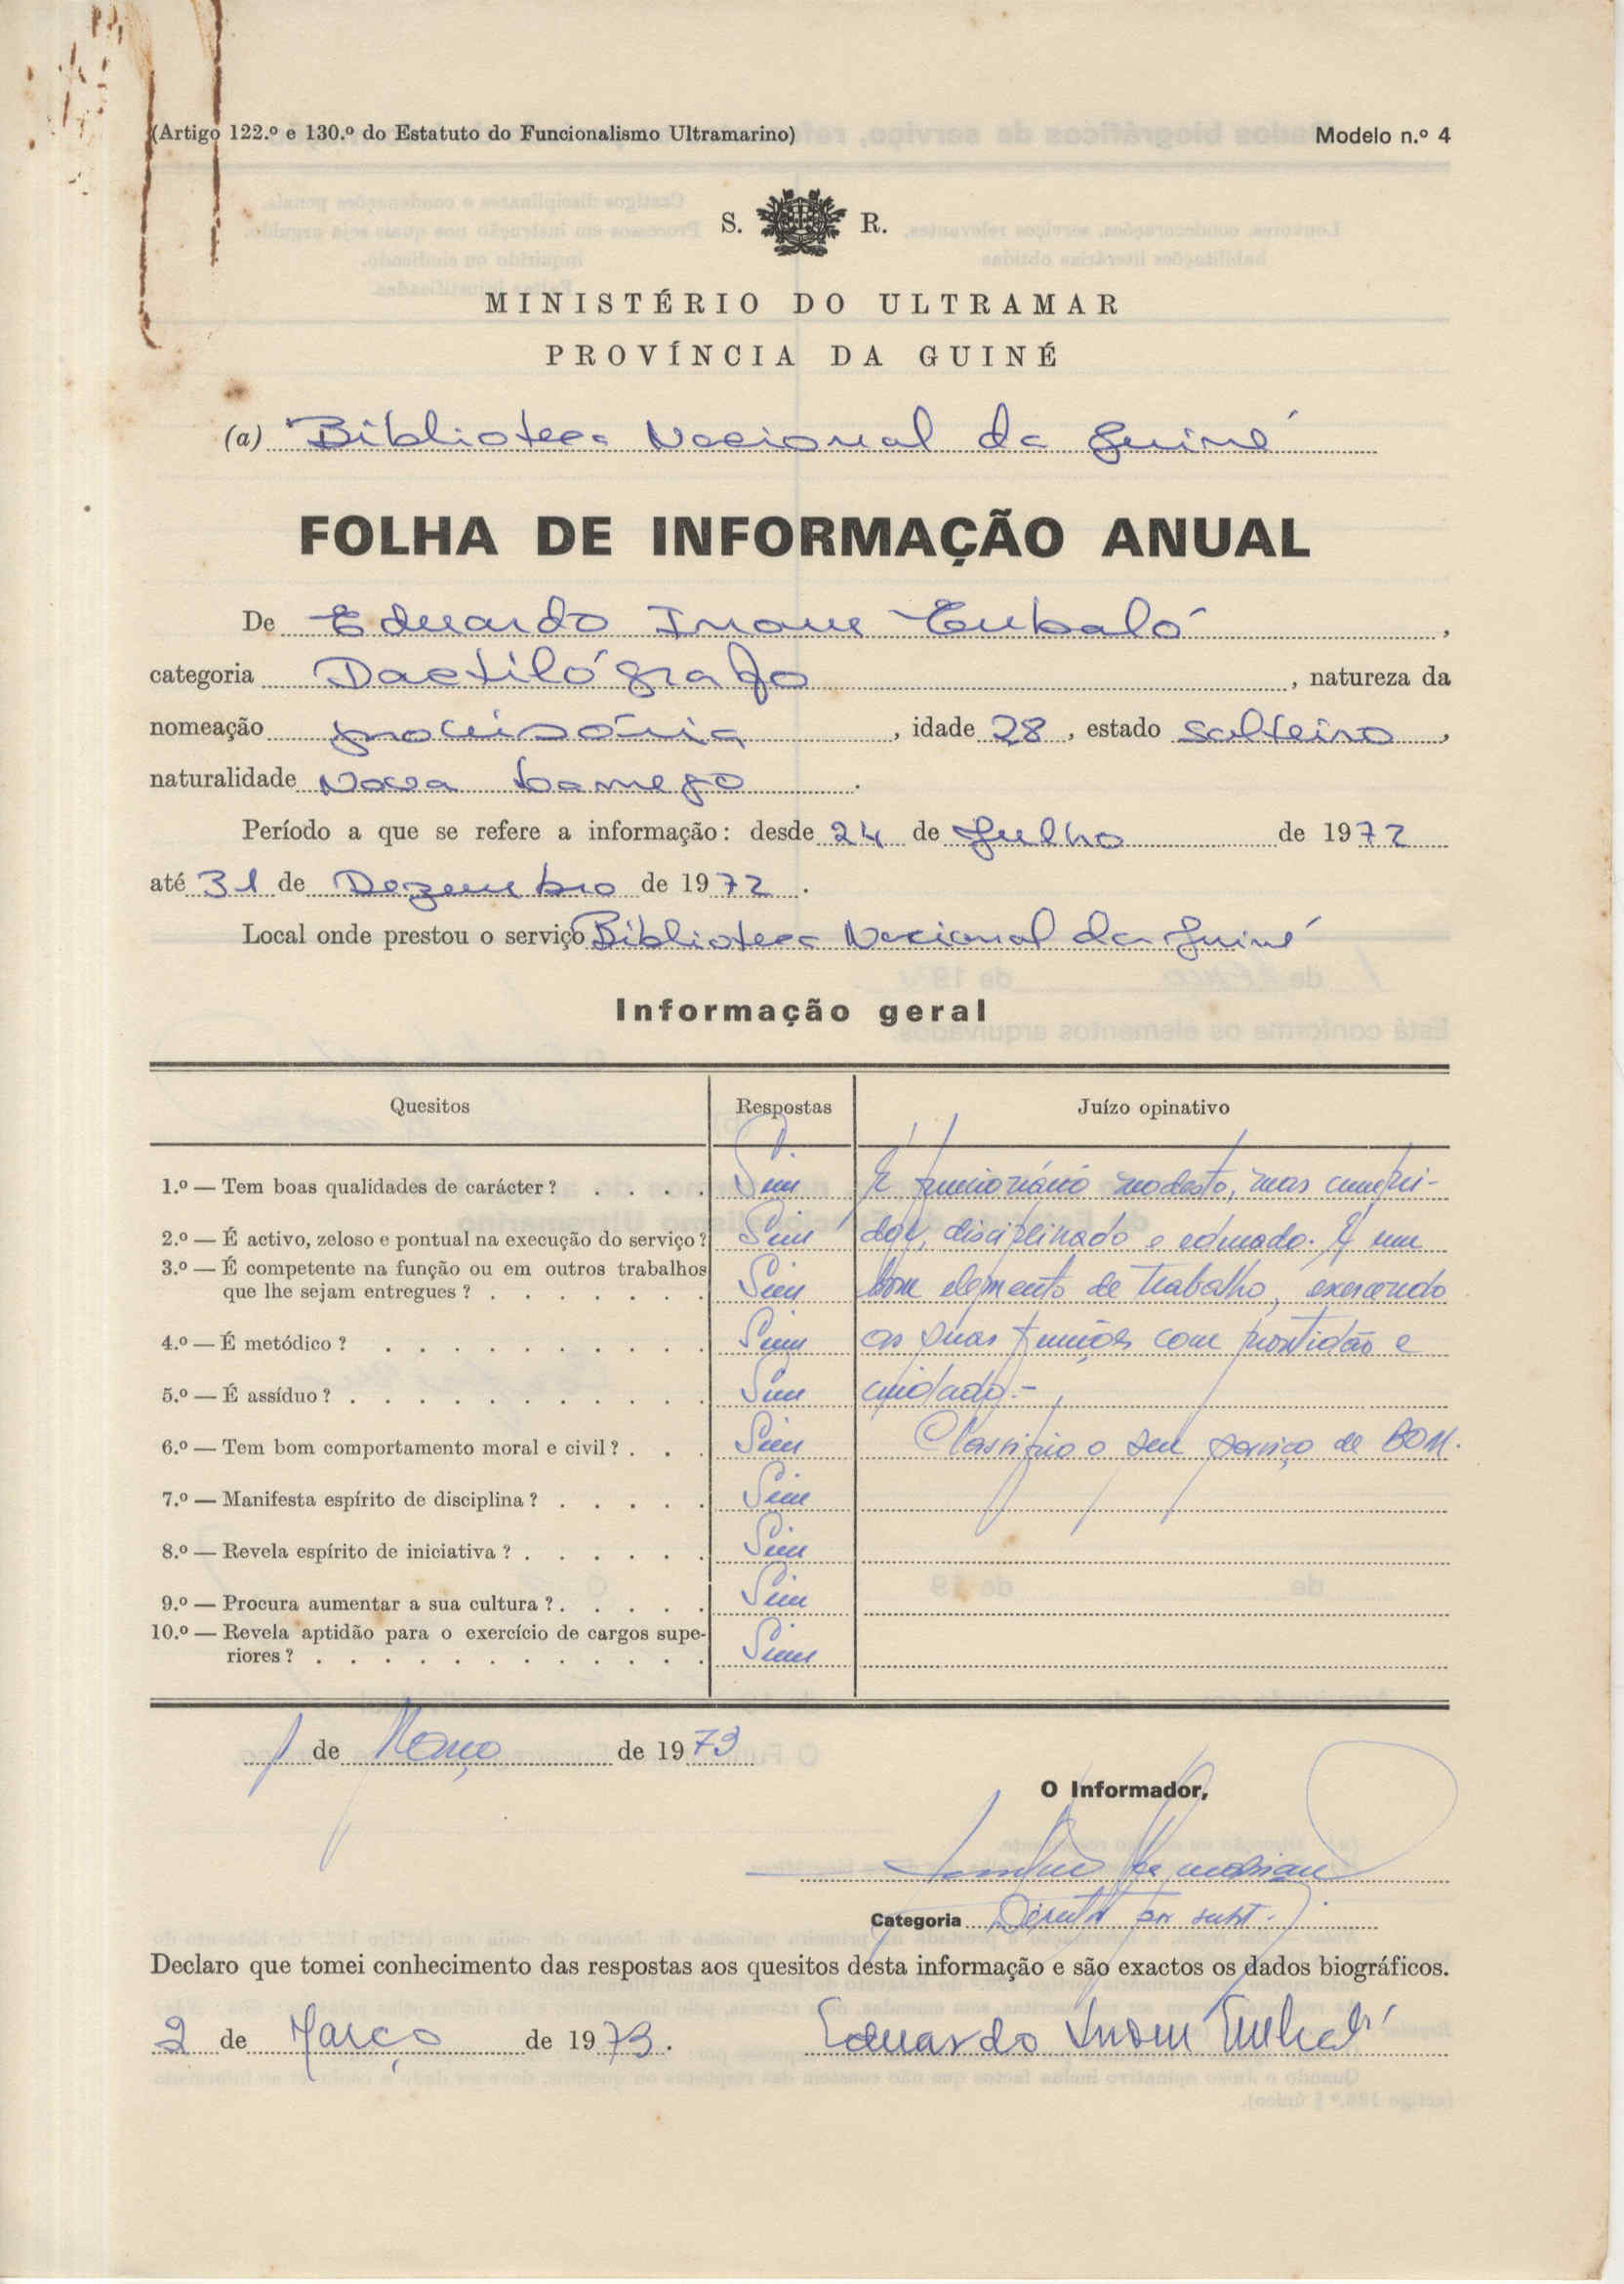 (Artigo 122.º e 130.º do Estatuto do Funcionalismo Ultramarino) Modelo n.º 4
S. R.
MINISTÉRIO DO ULTRAMAR
PROVÍNCIA DA GUINÉ
(a) Biblioteca Nacional da Guiné
FOLHA DE INFORMAÇÃO ANUAL
De Eduardo Embaló,
categoria Dactilógrafo, natureza da
nomeação provisória, idade 28, estado solteiro,
naturalidade Nova Lamego.
Período a que se refere a informação: desde 24 de Julho de 1972
até 31 de Dezembro de 1972.
Local onde prestou o serviço Biblioteca Nacional da Guiné
Informação geral
Quesitos Respostas Juízo opinativo
1.º — Tem boas qualidades de carácter? Sim É funcionário modesto, mas cumpri-
2.º — É activo, zeloso e pontual na execução do serviço? Sim dor, disciplinado e educado. É um
3.º — É competente na função ou em outros trabalhos
que lhe sejam entregues? Sim bom elemento de trabalho, exercendo
4.º — É metódico? Sim as suas funções com prontidão e
5.º — É assíduo? Sim cuidado.-
6.º — Tem bom comportamento moral e civil? Sim Classifico o seu serviço de BOM.
7.º — Manifesta espírito de disciplina? Sim
8.º — Revela espírito de iniciativa? Sim
9.º — Procura aumentar a sua cultura? Sim
10.º — Revela aptidão para o exercício de cargos supe-
riores? Sim
1 de Março de 1973
O Informador,
Categoria Director por subst.
Declaro que tomei conhecimento das respostas aos quesitos desta informação e são exactos os dados biográficos.
2 de Março de 1973. Eduardo Embaló